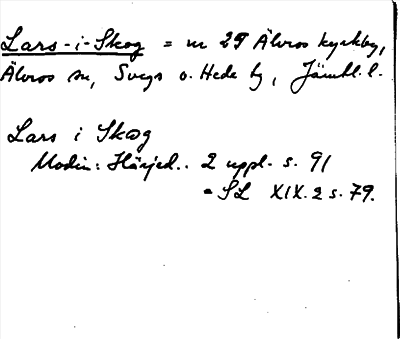 Lars-i-Skog = nr 29 Älvros kyrkby,
Älvros sn, Svegs o. Hede tg, Jämtl. l.
Lars i Skog
Modin: Härjed.. 2 uppl. s. 91
= SL XIX.2 s. 79.